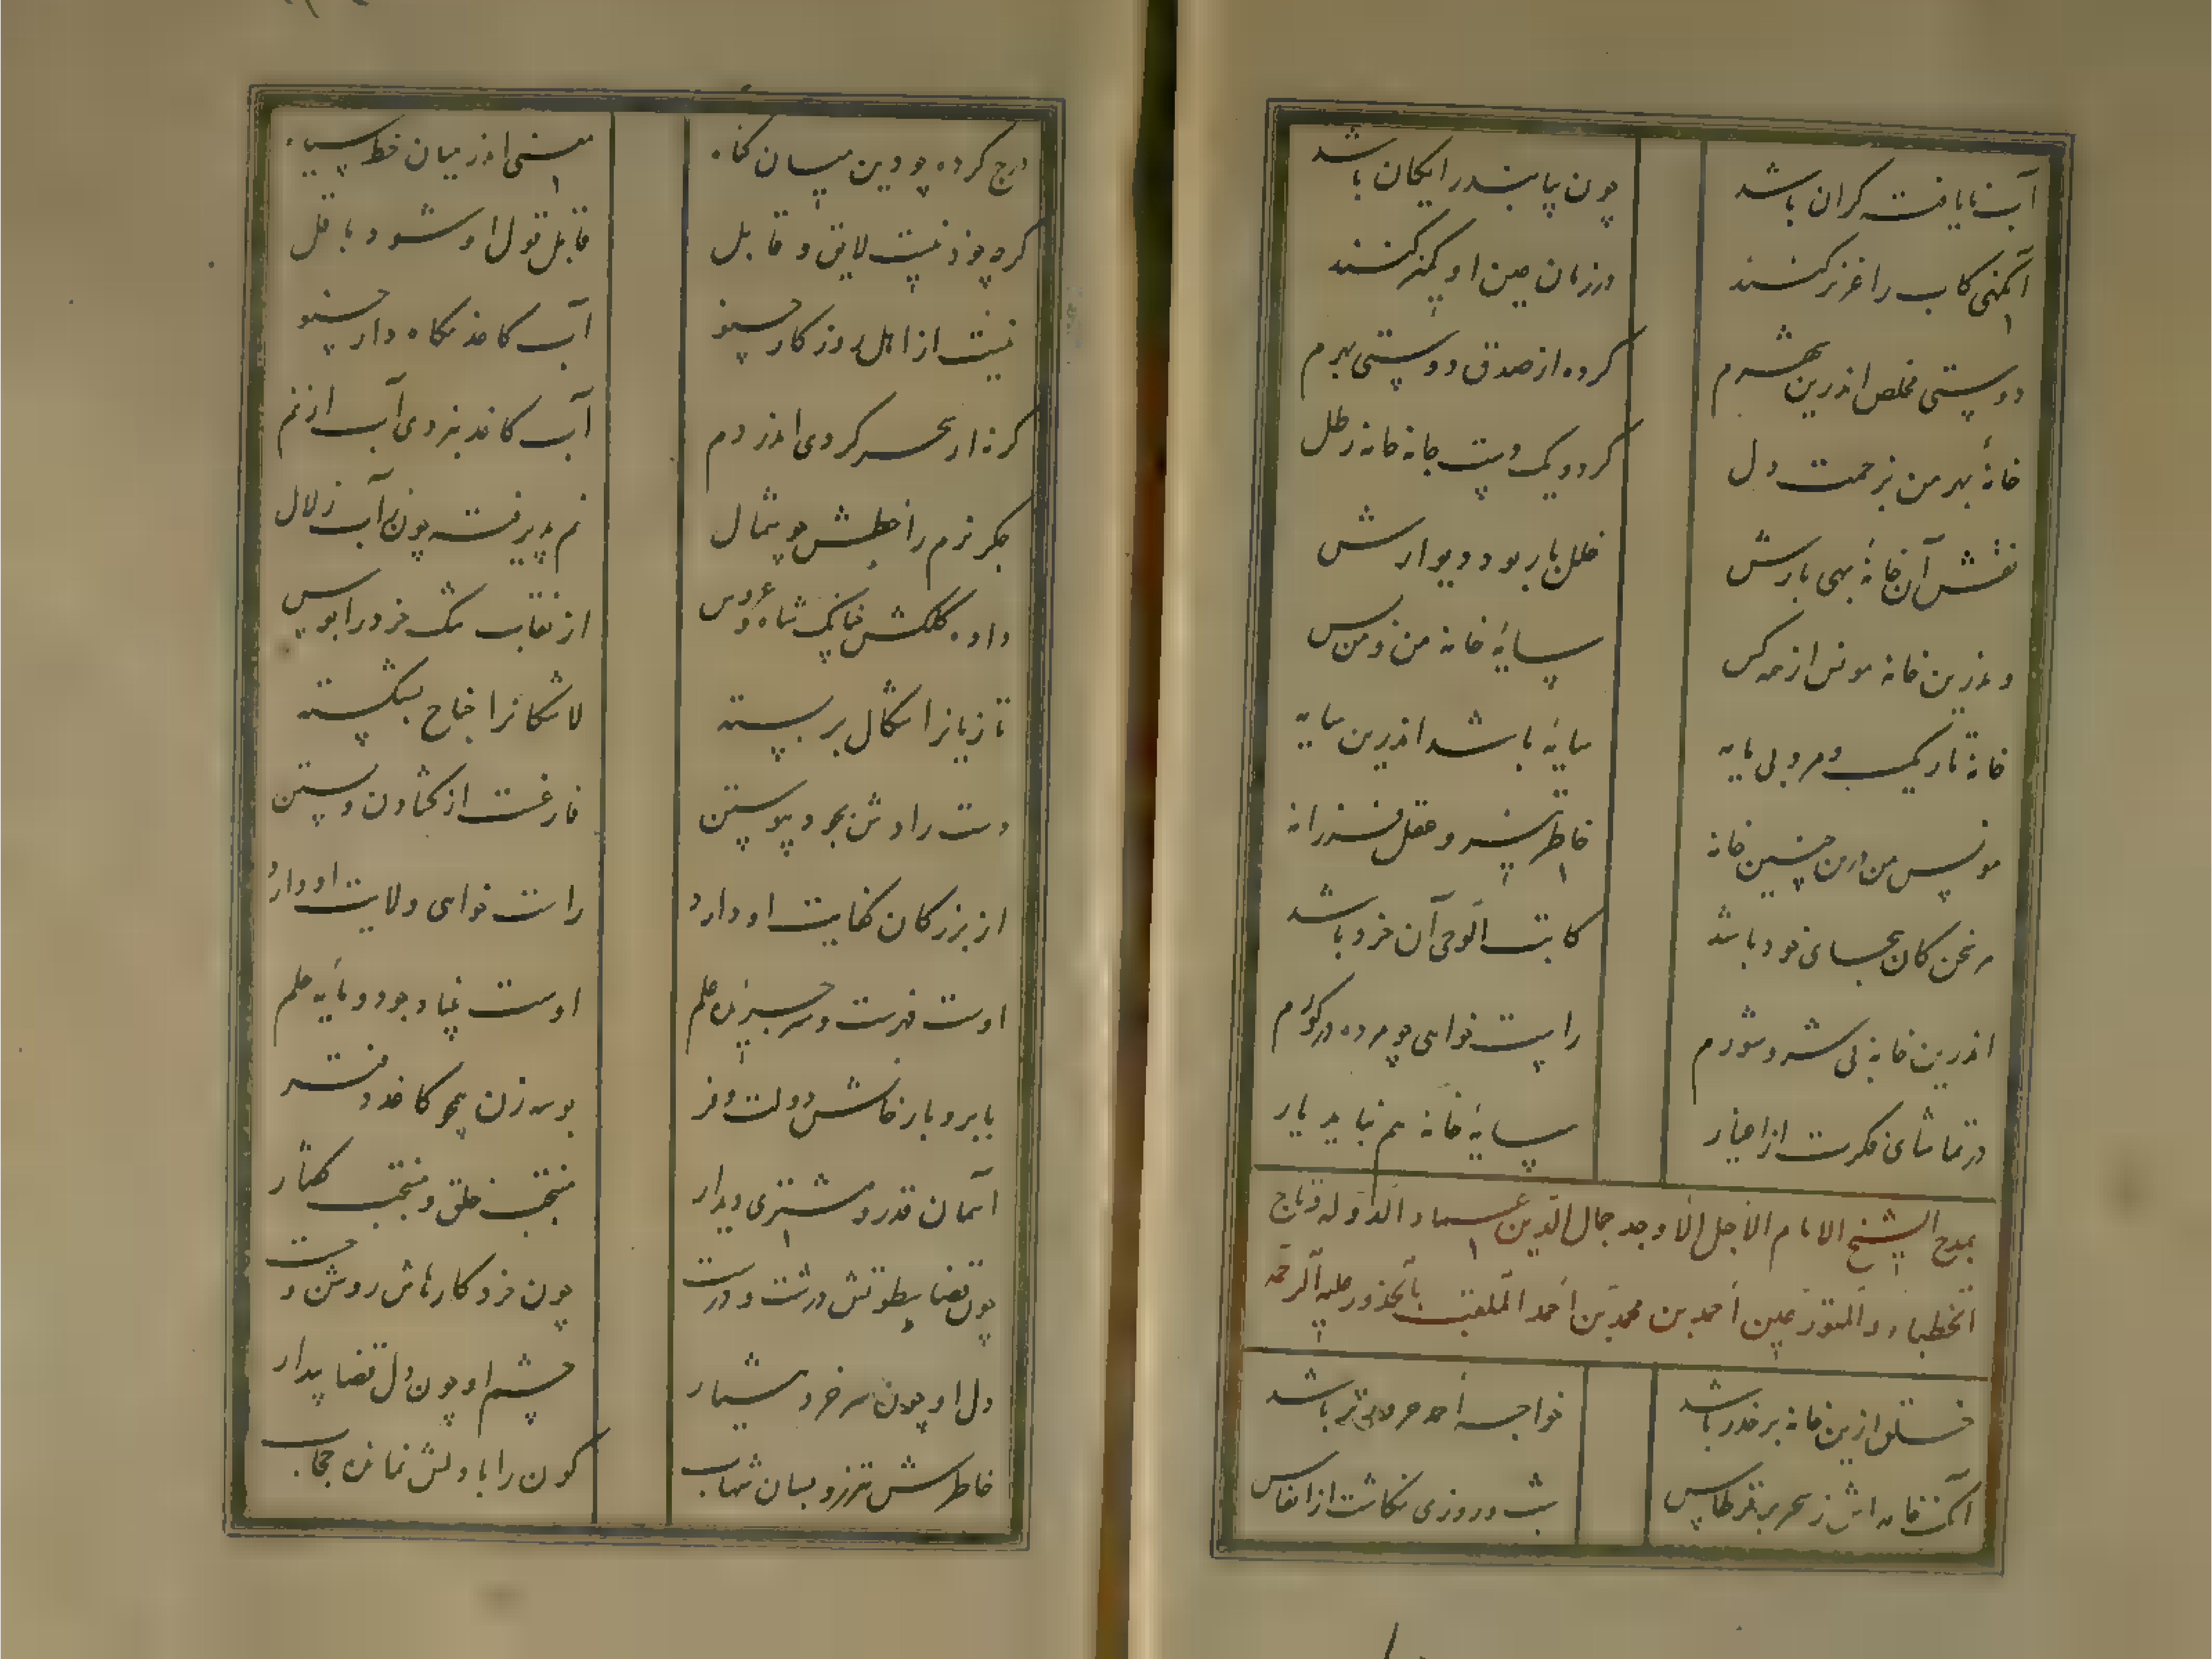 آب نایافته گران باشد
چون بیابند رایکان باشد
در زمان عین او کمیز کنند
دوستی مخلص اندرین شهرم
کرده از صدق دوستی بهرم
خانهٔ بهر من ز رحمت دل
نقش آن خانهٔ بهی بارش
خلل بار بود دیوارش
واندرین خانه مونس از همه کس
سایهٔ خانه من و من بس
خانهٔ تاریک و مر و بی مایه
سایهٔ باشد اندرین سایه
مونس من درین چنین خانه
خاطر تیز و عقل فرزانه
سخن کان بجای خود باشد
کاتب الوحی آن خرد باشد
اندرین خانه بی شر و شورم
راست خواهی چو مرده در گورم
در تماشای فکرت از اغیار
سایهٔ خانه هم نیابد بار
بمدح الشیخ الامام الاجل الاوحد جمال الدین عماد الدوله و تاج
الخطباء و المتورعین احمد بن محمد بن احمد الملقب بالحذور علیه الرحمه
خلق ازین خانه بر حذر باشد
خواجه احمد حروف‌تر باشد
آنک خامه‌اش ز سحر بر قرطاس
شب و روزی نگاشت از انفاس
درج کرده چو دین میان گناه
معنی اندر میان خط سیاه
گرچه خود نیست لایق و قابل
قابل قول او شود باقل
نیست از اهل روزگار چنو
آب کاغذ نگاه دار چنو
گرنه از سحر کردی اندر دم
آب کاغذ ببردی آب از نم
جگر نرم را خطش چو مثال
نم پذیرفت چون آب زلال
داده کلکش چنانک شاه عروس
از نقاب شک خرد را بوس
تازیان را شکال بر بسته
لاشگان را جناح بشکسته
دست رادش بجود پیوستن
فارغست از گشادن و بستن
از بزرگان کفایت او دارد
راست خواهی ولایت او دارد
اوست فهرست و سر جریده علم
اوست بنیاد جود و مایه حلم
بابر و بار خامش دولت و فر
بوسه زن همچو کاغذ دفتر
آسمان قدر و مشتری دیدار
منتجب خلق و منتخب گفتار
چون قضا سطوتش درشت و درست
چون خرد کارهاش روشن و چست
دل او چون سر خرد هشیار
چشم او چون دل قضا بیدار
خاطرش تیزرو بسان شهاب
کون را با دلش نمانده حجاب